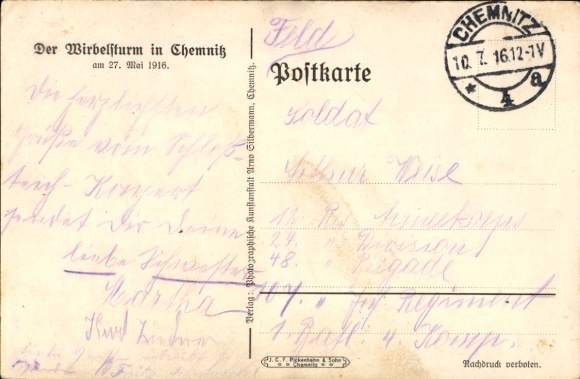 Der Wirbelsturm in Chemnitz
am 27. Mai 1916.
Die herzlichsten
Grüße vom Schloß-
teich-Konzert
sendet Dir Deine
liebe Schwester
Martha
Feld
Postkarte
CHEMNITZ
10.7.16.12-1V
* 4 a
Soldat
Weise
12. Res. Armeekorps
24. " Division
48. " Brigade
107. " Inf. Regiment
1. Batl. 4. Komp.
Verlag: Photographische Kunstanstalt Arno Silbermann, Chemnitz.
J.C.F. Pickenhahn & Sohn
Chemnitz
Nachdruck verboten.